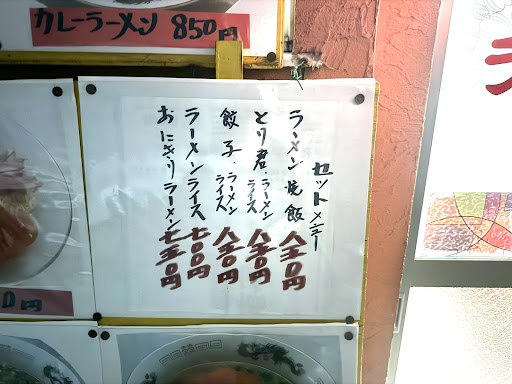 カレーラーメン 850円
セットメニュー
ラーメン 焼飯 八五〇円
とり君・ラーメンライス 八五〇円
餃子・ラーメンライス 八五〇円
ラーメンライス 七〇〇円
おにぎりラーメン 七五〇円
0円